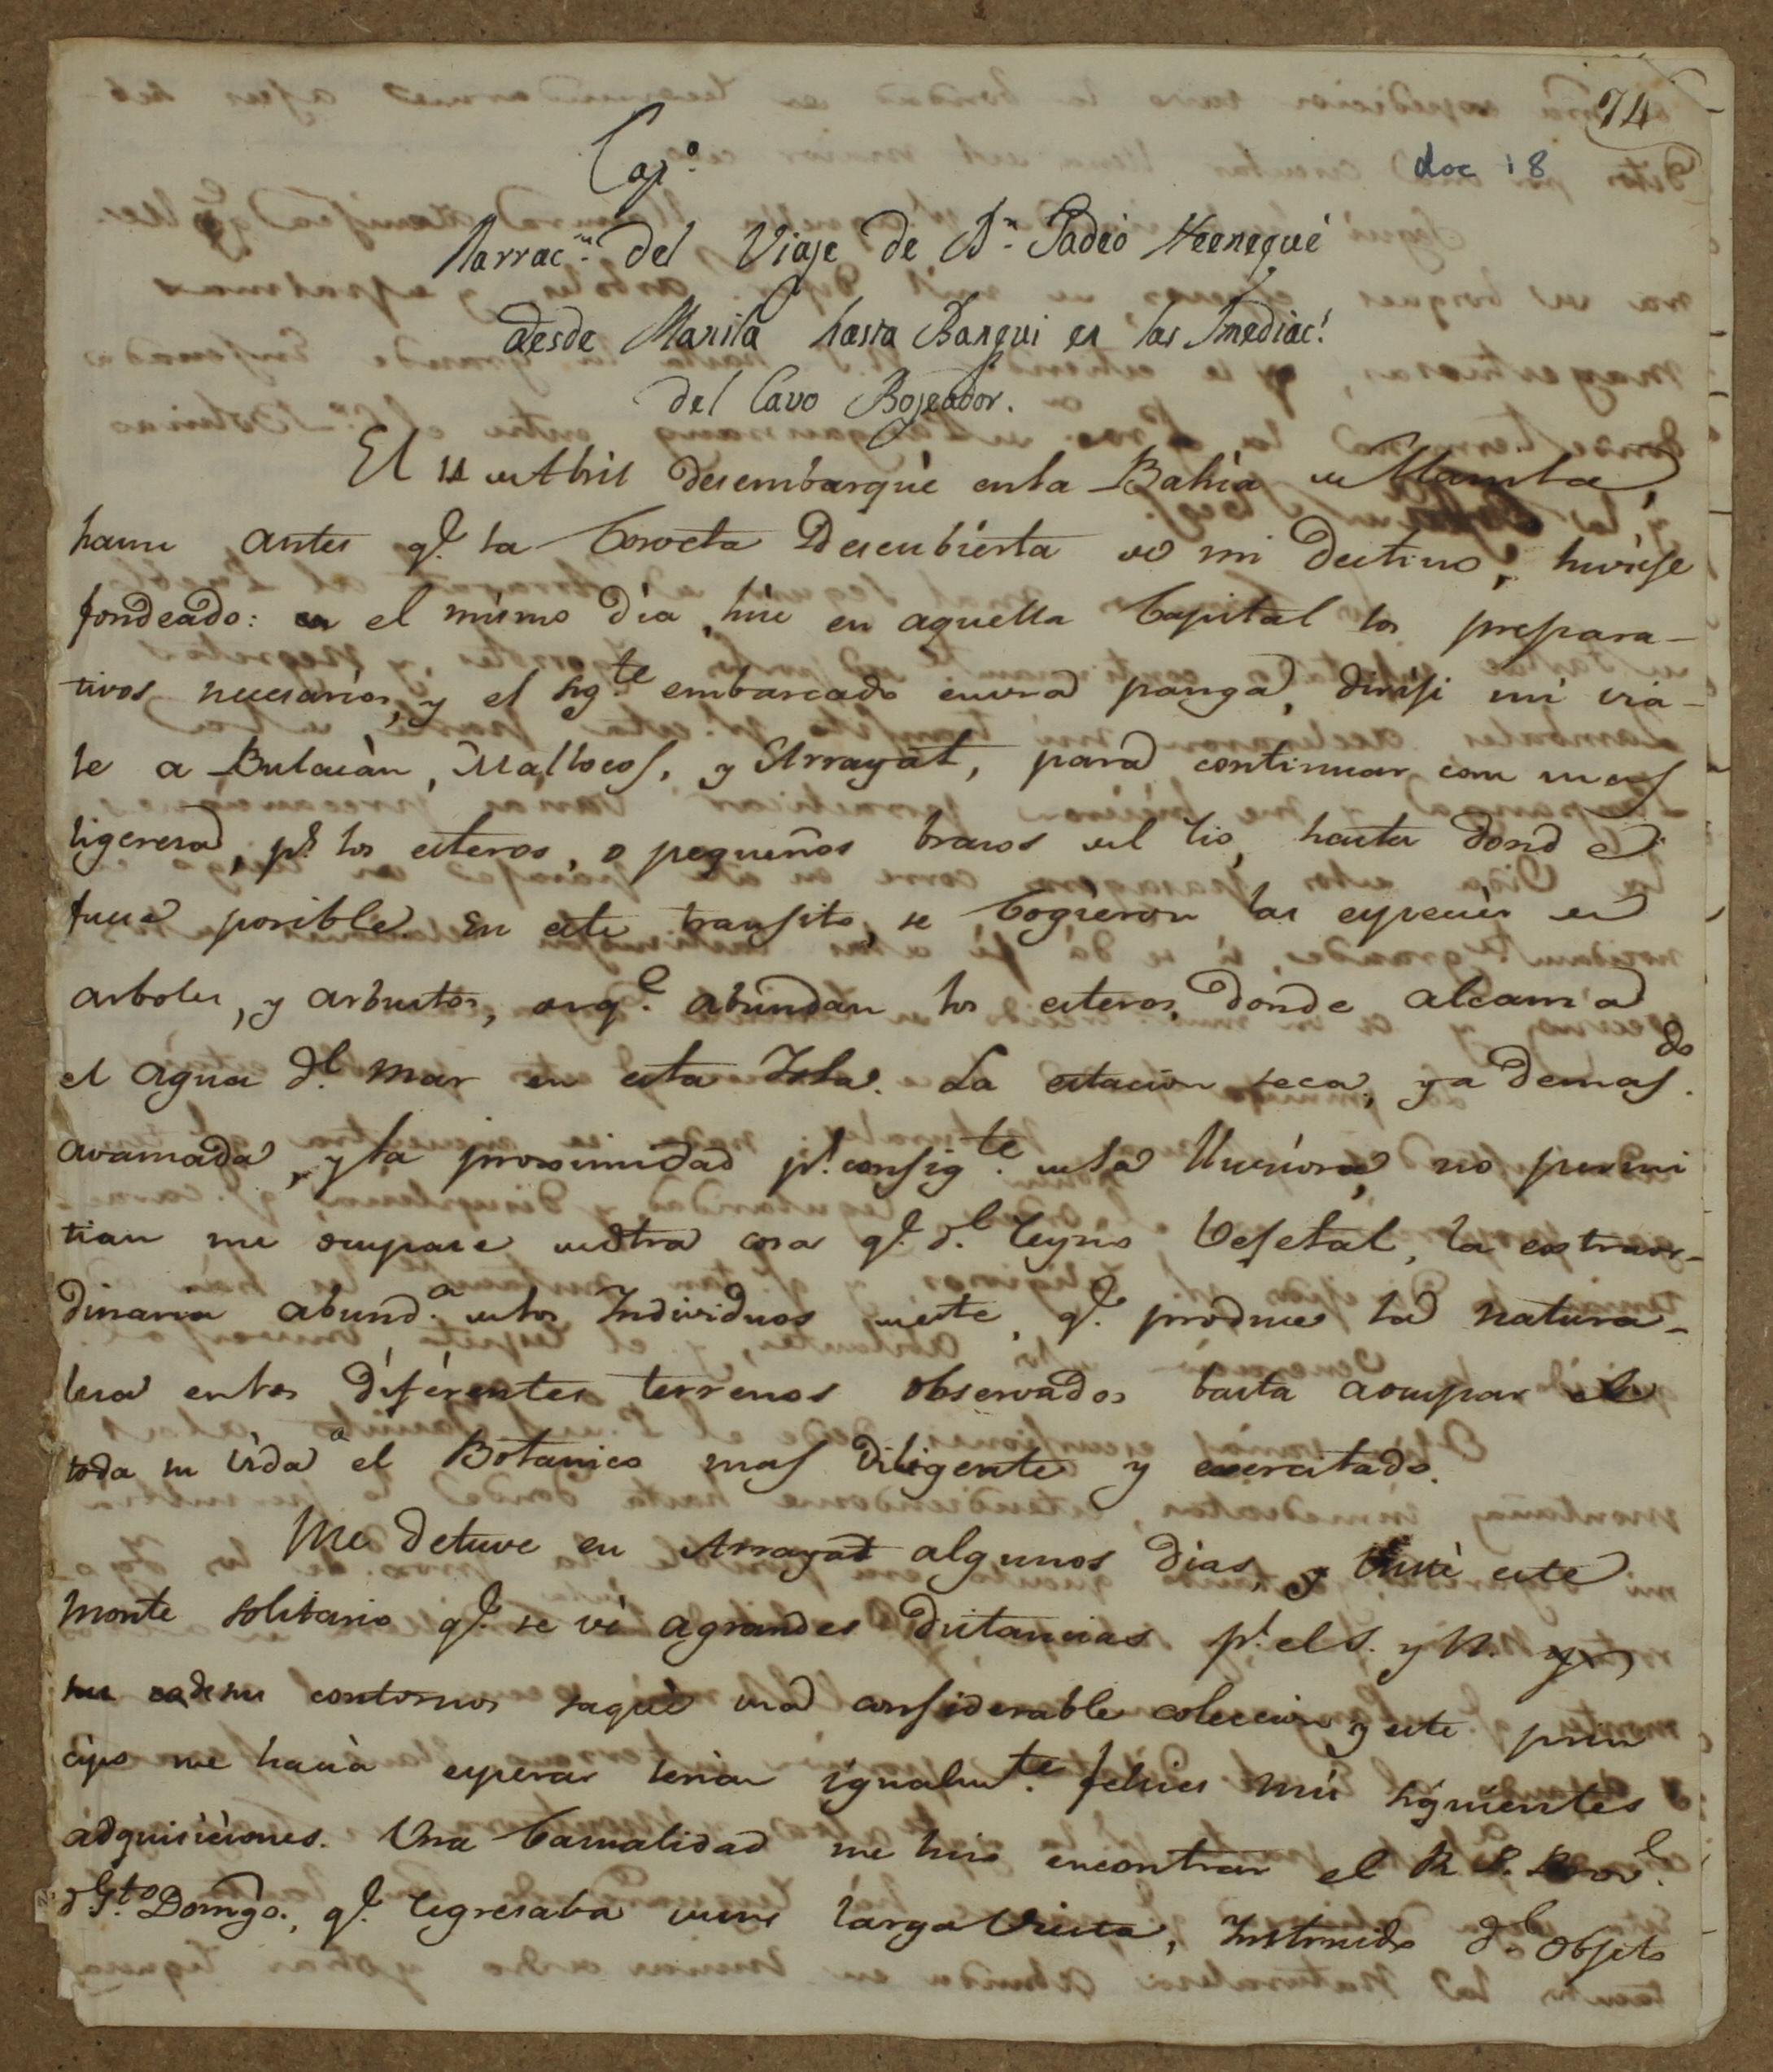 74
doc 18
Capº
Narracⁿ del Viaje de Dⁿ Tadeo Heenequé
desde Manila hasta Bangui en las Inmediac.ˢ
del Cavo Bojeador.
El 11 de Abril desembarqué en la Bahia de Manila,
haun antes qᵉ la Corveta Descubierta de mi destino, huviese
fondeado: en el mismo dia hice en aquella Capital los prepara-
tivos necesarios, y el sigᵗᵉ embarcado en una panga, dirijí mi via-
je a Bulacàn, Mallocos, y Arrayat, para continuar con mas
ligeresa, pʳ los esteros, o pequeños brasos del rio, hasta donde
fuese posible. En este transito, se Cogieron las especies de
arboles, y arbustos, en qᵉ abundan los esteros, donde alcansa
el agua dˡ mar en esta Isla. La estacion seca, ya demasᵈᵒ
avansada, y la proximidad pʳ consigᵗᵉ de la lluviosa, no permi
tian me ocupase de otra cosa qᵉ dˡ Reyno Vejetal, la extraor-
dinaria abundᵃ de los Individuos de este, qᵉ produce la natura-
lesa en los diferentes terrenos observados basta a ocupar
toda su vida a el Botanico mas diligente y exercitado.
Me detuve en Arrayat algunos dias, y visité este
monte solitario qᵉ se vé a grandes distancias pʳ el S. y N.
de sus contornos saqué una considerable coleccion, y este prin
cipio me hacia esperar serian igualmᵗᵉ felices mis siguientes
adquisiciones. Una Casualidad me hiso encontrar el R. P. Provˡ
dˡ Sᵗᵒ Domgo., qᵉ regresaba de una larga Visita, Instruido dˡ Objeto